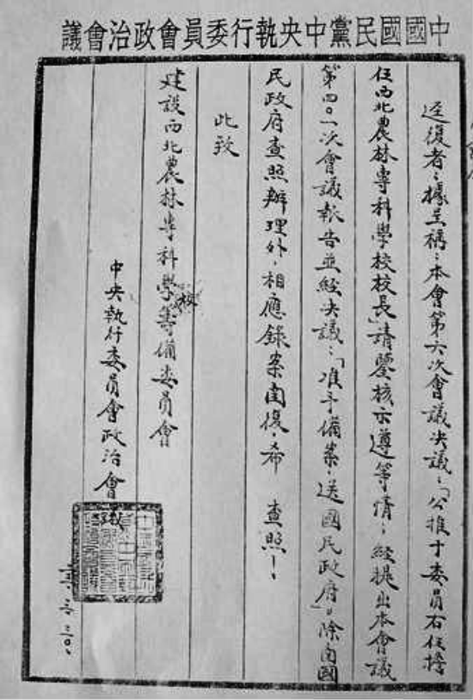 中國國民黨中央執行委員會政治會議
逕復者:據呈稱:本會第六次會議决議:「公推于委員右任擔
任西北農林專科學校校長」請鑒核示遵等情;經提出本會議
第四〇一次會議報告並經决議:「准予備案,送國民政府」。除函國
民政府查照辦理外,相應錄案函復,希 查照!,
此致
建設西北農林專科學校籌備委員會
中央執行委員會政治會議